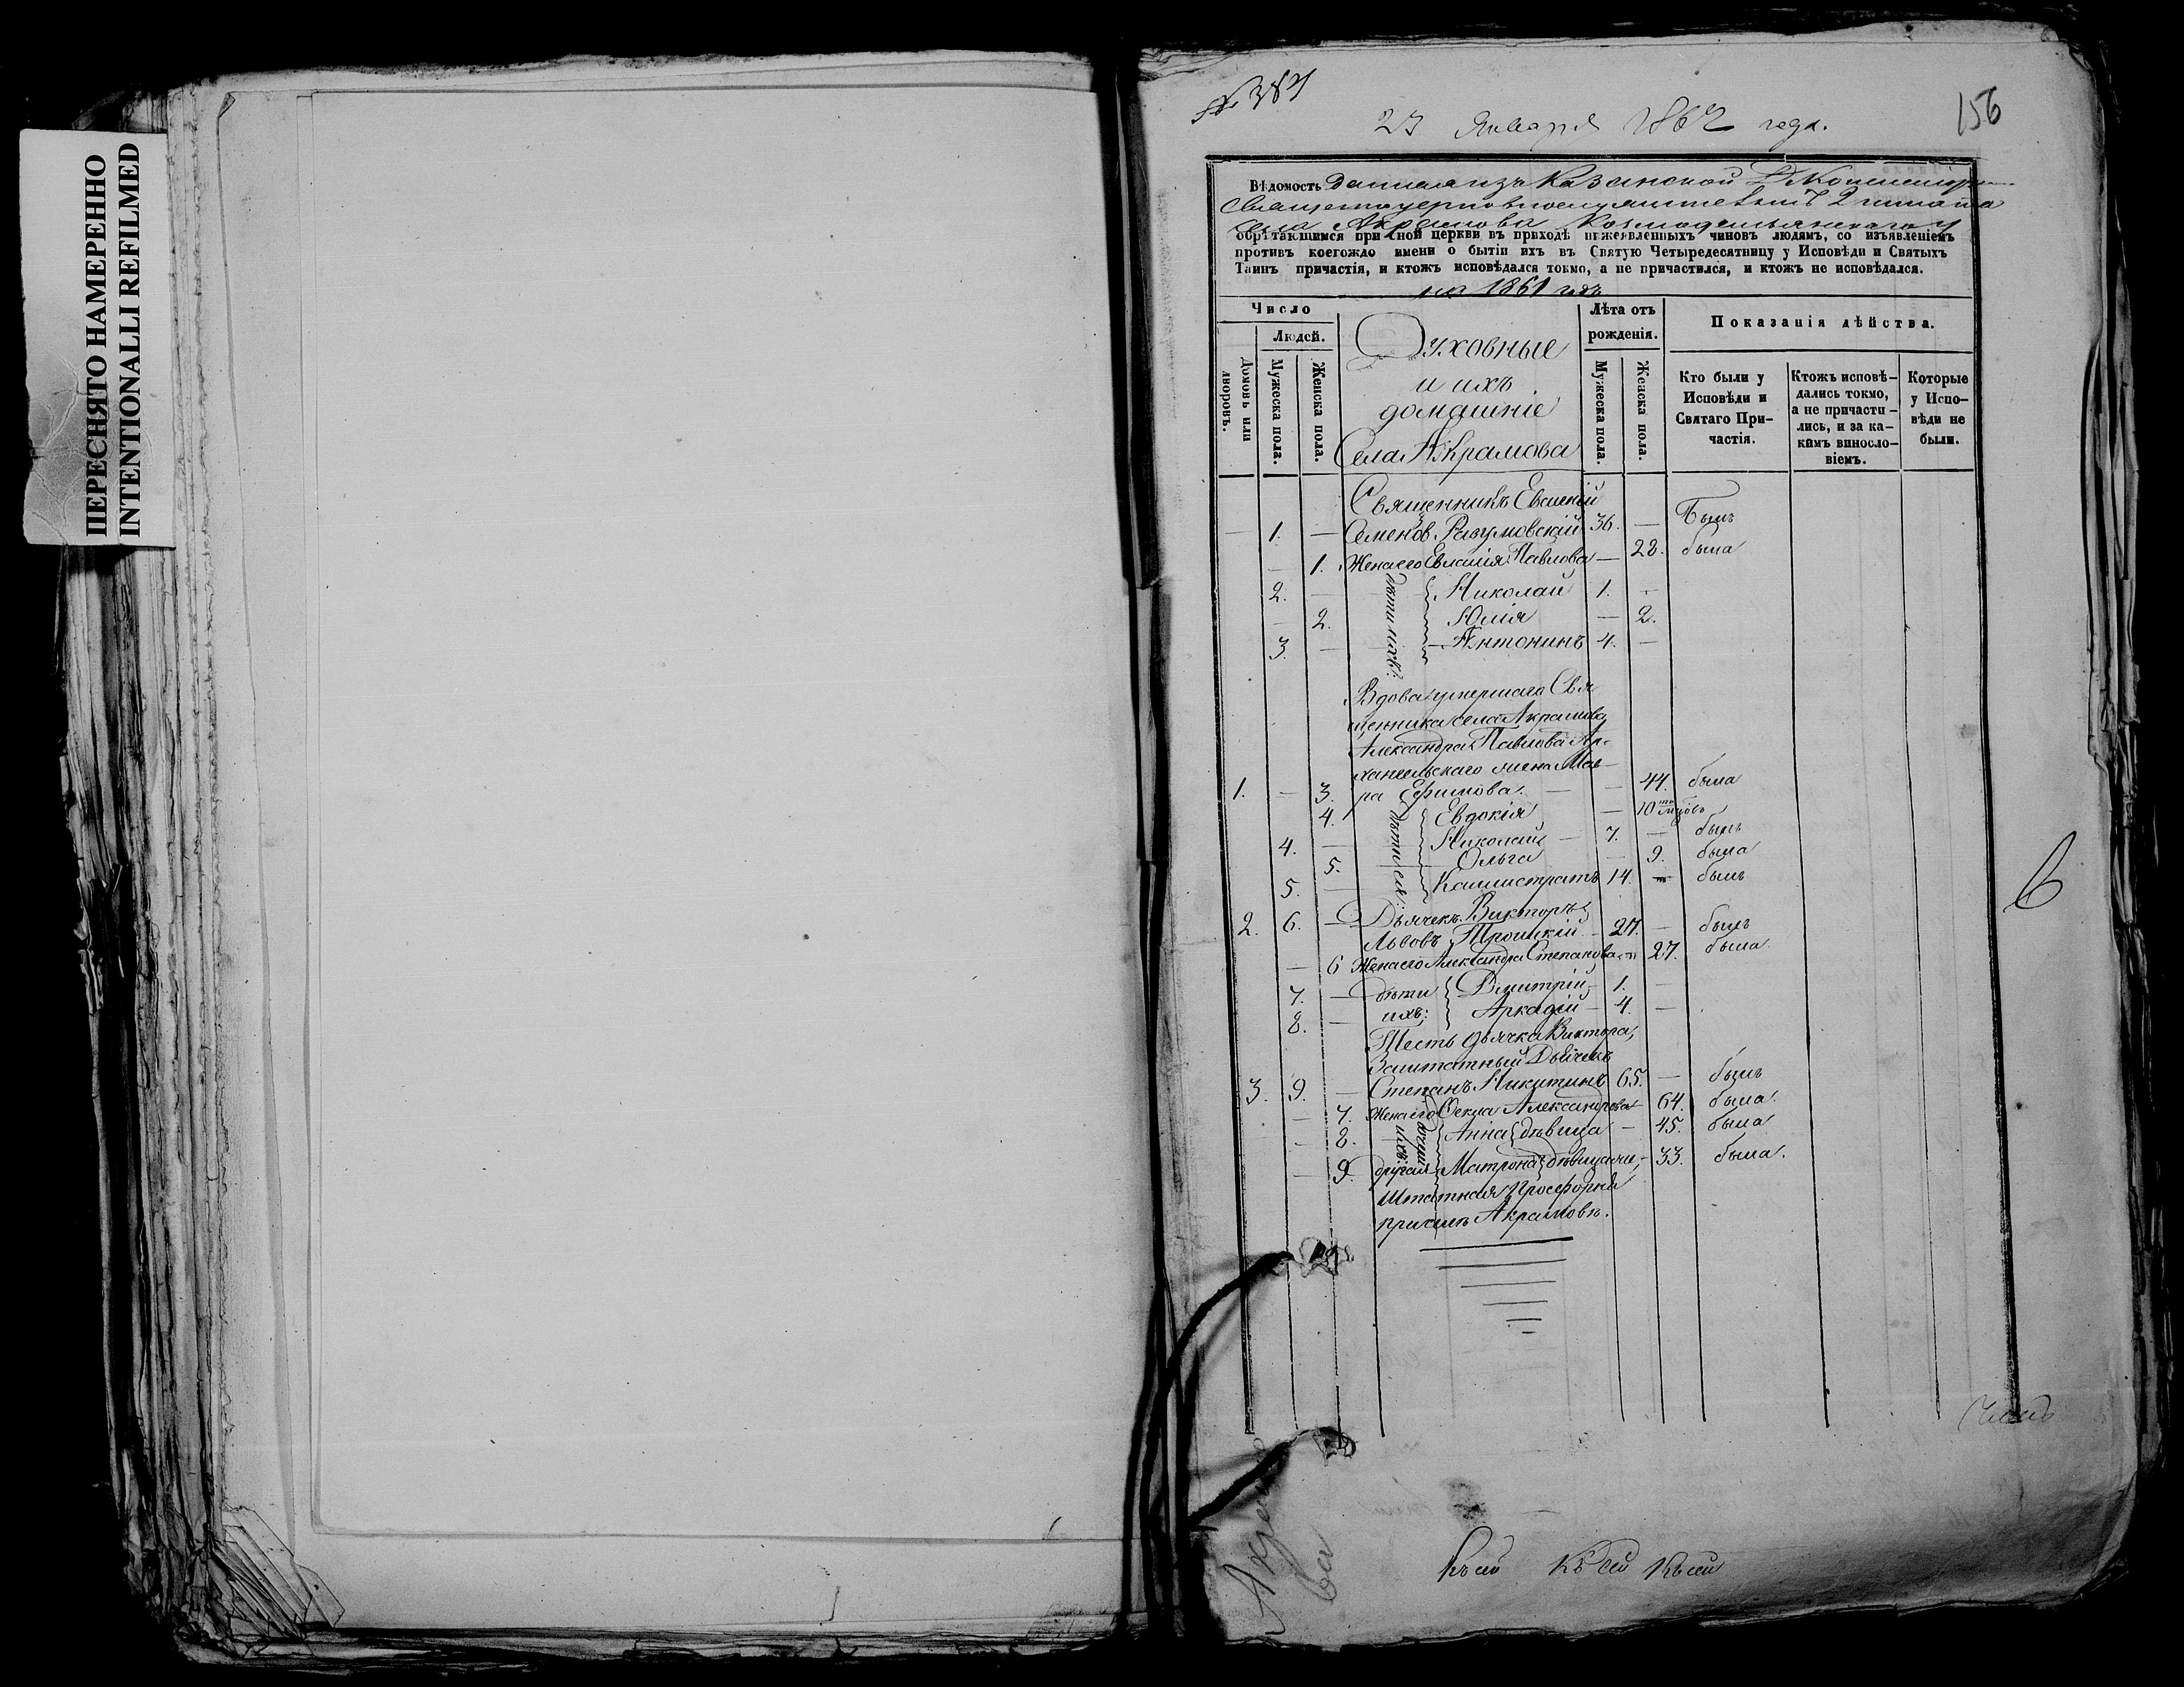 ПЕРЕСНЯТО НАМЕРЕННО
INTENTIONALLI REFILMED
№ 384
156
23 Января 1862 года.
Вѣдомость данная изъ Казанской Д. Консисторіи
села Акрамова Козмодемьянскаго У
обрѣтающимся при оной церкви въ приходѣ нижеявленныхъ чиновъ людямъ, со изъявленіемъ
противъ коегождо имени о бытіи ихъ въ Святую Четыредесятницу у Исповѣди и Святыхъ
Таинъ причастія, и ктожъ исповѣдался токмо, а не причастился, и ктожъ не исповѣдался.
на 1861 годъ
Число
Людей.
Домовъ или дворовъ.
Мужеска пола.
Женска пола.
Духовные
и ихъ
домашніе
Села Акрамова
Лѣта отъ
рожденія.
Мужеска пола.
Женска пола.
Показанія дѣйства.
Кто были у
Исповѣди и
Святаго При-
частія.
Ктожъ исповѣ-
дались токмо,
а не причасти-
лись, и за ка-
кимъ винословіемъ.
Которые
у Испо-
вѣди не
были.
Священникъ Евгеній
— 1. — Семенов Разумовскій 36. — Былъ
— 1. Жена его Евлалія Павлова — 28. была
дѣти ихъ:
2. — Николай 1. —
— 2. Юлія — 2.
3. — Антонинъ 4. —
Вдова умершаго Свя
щенника села Акрамова
Александра Павлова Ар-
хангельскаго жена Мав-
1. — 3. ра Ефимова. — — 44. была
дѣти ея:
4. Евдокія — 10
4. — Николай — 7. — былъ
5. Ольга — 9. была
5. — Каллистратъ 14. — былъ
2. 6. — Дьячекъ Викторъ
Львовъ Троицкій — 27. — былъ
— 6 Жена его Александра Степанова — 27. была.
7. — дѣти Дмитрій — 1. —
8. — ихъ: Аркадій — 4. —
Тесть дьячка Виктора,
Заштатный Дьячекъ
3. 9. — Степанъ Никитинъ 65. — былъ
— 7. Жена его Фекла Александрова — 64. была.
дочери ихъ:
— 8. — Анна дѣвица — 45. была
— 9. другая Матрона дѣвица — 33. была.
Штатная Просфорня
при селѣ Акрамовѣ.
6
Число
Акрамо
ва